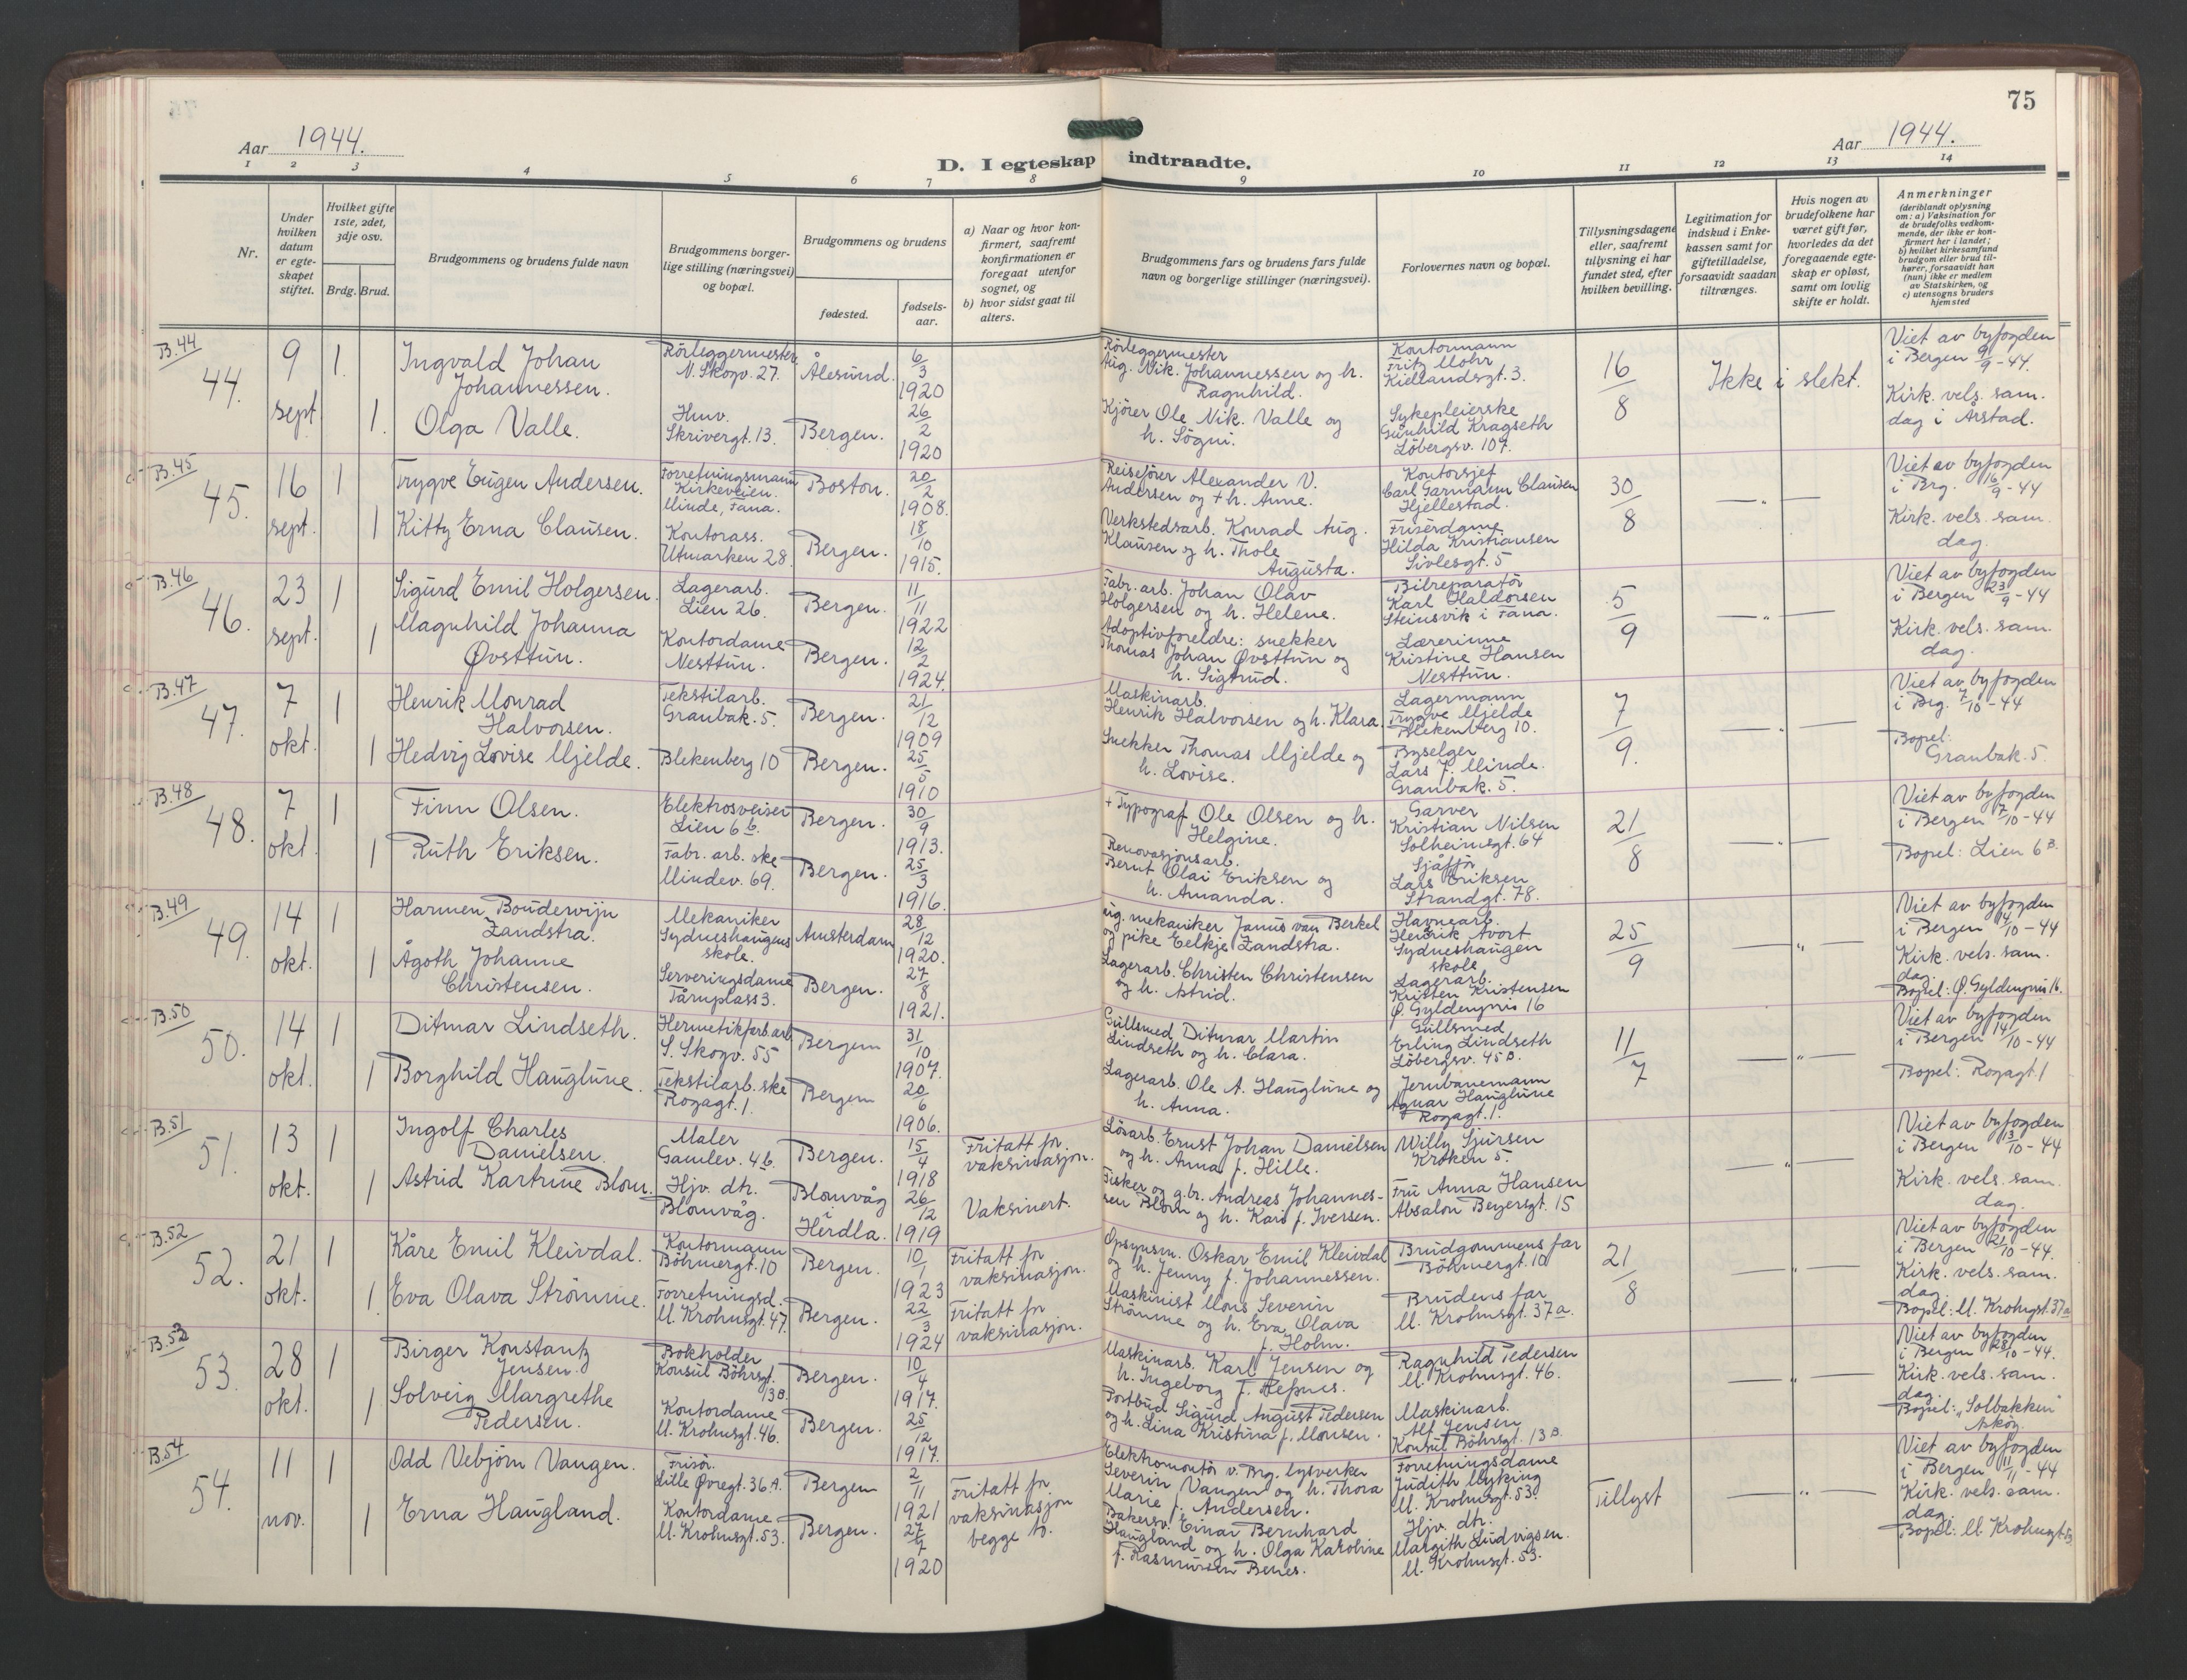 75
Aar 1944.
Aar 1944.
D. I egteskap indtraadte.
1 2 3 4 5 6 7 8 9 10 11 12 13 14
Nr.
Under hvilken datum er egteskapet stiftet.
Hvilket gifte 1ste, 2det, 3dje osv.
Brdg. Brud.
Brudgommens og brudens fulde navn
Brudgommens borgerlige stilling (næringsvei) og bopæl.
Brudgommens og brudens
fødested.
fødselsaar.
a) Naar og hvor konfirmert, saafremt konfirmationen er foregaat utenfor sognet, og
b) hvor sidst gaat til alters.
Brudgommens fars og brudens fars fulde navn og borgerlige stillinger (næringsvei).
Forlovernes navn og bopæl.
Tillysningsdagene eller, saafremt tillysning ei har fundet sted, efter hvilken bevilling.
Legitimation for indskud i Enkekassen samt for giftetilladelse, forsaavidt saadan tiltrænges.
Hvis nogen av brudefolkene har været gift før, hvorledes da det foregaaende egteskap er opløst, samt om lovlig skifte er holdt.
Anmerkninger
(deriblandt oplysning om: a) Vaksination for de brudefolks vedkommende, der ikke er konfirmert her i landet; b) hvilket kirkesamfund brudgom eller brud tilhører, forsaavidt han (hun) ikke er medlem av Statskirken, og c) utensogns bruders hjemsted
B.44
44. 9 sept. 1
Ingvald Johan Johannessen.
Rörleggermester N. Skogv. 27.
Ålesund. 6/3 1920
Rörleggermester Aug. Nik. Johannessen og h. Ragnhild.
Kontormann Fritz Mohr Kiellandsgt. 3.
16/8
Ikke i slekt.
Viet av byfogden i Bergen 9/9-44.
Kirk. vels. sam. dag i Årstad.
1. Olga Valle.
Husv. Skrivergt. 13.
Bergen. 26/2 1920
Kjörer Ole Nik. Valle og h. Sögni.
Sykepleierske Gunhild Kragseth Löbergsv. 107.
B.45
45. 16 sept. 1
Trygve Eugen Andersen.
Forretningsmann Kirkeveien. Minde, Fana.
Boston. 20/2 1908.
Reiseförer Alexander V. Andersen og + h. Anne.
Kontorsjef Carl Garmann Clausen Hjellestad.
30/8
— „ —
Viet av byfogden i Brg. 16/9-44
Kirk. vels. sam. dag.
1 Kitty Erna Clausen.
Kontorass. Utmarken 28.
Bergen. 18/10 1915.
Verkstedsarb. Konrad Aug. Klausen og h. Thole Augusta.
Frisérdame Hilda Kristiansen Sivlesgt. 5
B.46
46. 23 sept. 1
Sigurd Emil Holgersen.
Lagerarb. Lien 26.
Bergen. 11/11 1922
Fabr. arb. Johan Olav Holgersen og h. Helene.
Bilreparatör Karl Haldorsen Steinsvik i Fana.
5/9
— „ —
Viet av byfogden i Bergen 23/9-44
Kirk. vels. sam. dag.
1 Magnhild Johanna Øvsttun.
Kontordame Nesttun.
Bergen. 12/2 1924.
Adoptivforeldre: snekker Thomas Johan Øvsttun og h. Sigtrud.
Lærerinne Kristine Hansen Nesttun.
B.47
47. 7 okt. 1
Henrik Monrad Halvorsen.
Tekstilarb. Granbak. 5.
Bergen. 21/12 1909
Maskinarb. Henrik Halvorsen og h. Klara.
Lagermann Trygve Mjelde Blekenberg 10.
7/9.
— „ —
Viet av byfogden i Brg. 7/10-44
Bopel: Granbak. 5.
1 Hedvig Lovise Mjelde.
Blekenberg 10
Bergen. 25/5 1910
Snekker Thomas Mjelde og h. Lovise.
Byselger Lars J. Minde. Granbak. 5.
B.48
48. 7 okt. 1
Finn Olsen.
Elektrosveiser Lien 6 b.
Bergen. 30/9 1913.
+ Typograf Ole Olsen og h. Helgine.
Garver Kristian Nilsen Solheimsgt. 64
21/8
— „ —
Viet av byfogden i Bergen 7/10-44
Bopel: Lien 6 B.
1 Ruth Eriksen.
Fabr. arb. ske Mindev. 69.
Bergen. 25/3 1916.
Renovasjonsarb. Bernt Olai Eriksen og h. Amanda.
Sjåffør Lars Eriksen Strandgt. 78.
B.49
49. 14 okt. 1
Harmen Boudewijn Zandstra.
Mekaniker Sydneshaugens skole.
Amsterdam 28/12 1920.
ug. mekaniker Janus van Berkel og pike Eelkje Zandstra.
Havnearb. Henrik Avort Sydneshaugen skole
25/9
„ —
Viet av byfogden i Bergen 14/10-44
Kirk. vels. sam. dag.
Bopel: Ø. Gyldenpris 16.
1 Ågoth Johanne Christensen.
Serveringsdame Tårnplass 3.
Bergen. 27/8 1921.
Lagerarb. Christen Christensen og h. Astrid.
Lagerarb. Kristen Kristensen Ø. Gyldenpris 16
B.50
50. 14 okt. 1
Ditmar Lindseth.
Hermetikfarb.arb. S. Skogv. 55
Bergen 31/10 1907.
Gullsmed Ditmar Martin Lindseth og h. Clara.
Gullsmed Erling Lindseth Löbergsv. 45 B.
11/7
— „ —
Viet av byfogden i Bergen 14/10-44
Bopel: Rogagt. 1
1 Borghild Hauglune.
Tekstilarb.ske Rogagt. 1.
Bergen 20/6 1906.
Lagerarb. Ole A. Hauglune og h. Anna.
Jernbanemann Agnar Hauglune Rogagt. 1.
B.51
51. 13 okt. 1
Ingolf Charles Danielsen.
Maler Gamlev. 4 b.
Bergen. 15/4 1918
Fritatt for vaksinasjon.
Lösarb. Ernst Johan Danielsen og h. Anna f. Hille.
Willy Sjursen Kroken 5.
— „ —
Viet av byfogden i Bergen 13/10-44
Kirk. vels. sam. dag.
1 Astrid Kartrine Blom.
Hjv. dtr. Blomvåg.
Blomvåg i Herdla. 26/12 1919
Vaksinert.
Fisker og g.br. Andreas Johannessen Blom og h. Kari f. Iversen.
Fru Anna Hansen Absalon Beyersgt. 15
B.52
52. 21 okt. 1
Kåre Emil Kleivdal.
Kontormann Böhmergt. 10
Bergen. 10/1 1923
Fritatt for vaksinasjon.
Opsynsm. Oskar Emil Kleivdal og h. Jenny f. Johannessen.
Brudgommens far Böhmergt. 10
21/8
— „ —
Viet av byfogden i Bergen 21/10-44.
Kirk. vels. sam. dag.
Bopel: M. Krohnsgt. 37 a
1. Eva Olava Strömme.
Forretningsd. M. Krohnsgt. 47.
Bergen. 22/3 1924
Fritatt for vaksinasjon.
Maskinist Mons Severin Strömme og h. Eva Olava f. Holm.
Brudens far M. Krohnsgt. 37 a.
B.53
53. 28 okt. 1
Birger Konstantz Jensen.
Bokholder Konsul Böhrsgt. 13 B.
Bergen. 10/4 1917.
Maskinarb. Karl Jensen og h. Ingeborg f. Refsnes.
Ragnhild Pedersen M. Krohnsgt. 46.
— „ —
Viet av byfogden i Bergen 28/10-44.
Kirk. vels. sam. dag.
Bopel: „Solbakken" Askøy.
1 Solveig Margrethe Pedersen.
Kontordame M. Krohnsgt. 46.
Bergen. 25/12 1917.
Postbud Sigurd August Pedersen og h. Lina Kristina f. Monsen.
Maskinarb. Alf Jensen Konsul Böhrsgt. 13 B.
B.54
54. 11 nov. 1
Odd Vebjörn Vangen.
Frisör. Lille Øvregt. 36 A.
Bergen 2/11 1921
Fritatt for vaksinasjon begge to.
Elektromontör v. Brg. lysverker Severin Vangen og h. Thora Marie f. Andersen.
Forretningsdame Judith Myking M. Krohnsgt. 53.
Tillyst
— „ —
Viet av byfogden i Bergen 11/11-44
Kirk. vels. sam. dag.
Bopel: M. Krohnsgt. 53
1 Erna Haugland.
Kontordame M. Krohnsgt. 53.
Bergen. 27/7 1920
Bakersv. Einar Bernhard Haugland og h. Olga Karoline f. Rasmussen Benes.
Hjv. dtr. Margith Ludvigsen. M. Krohnsgt. 53.